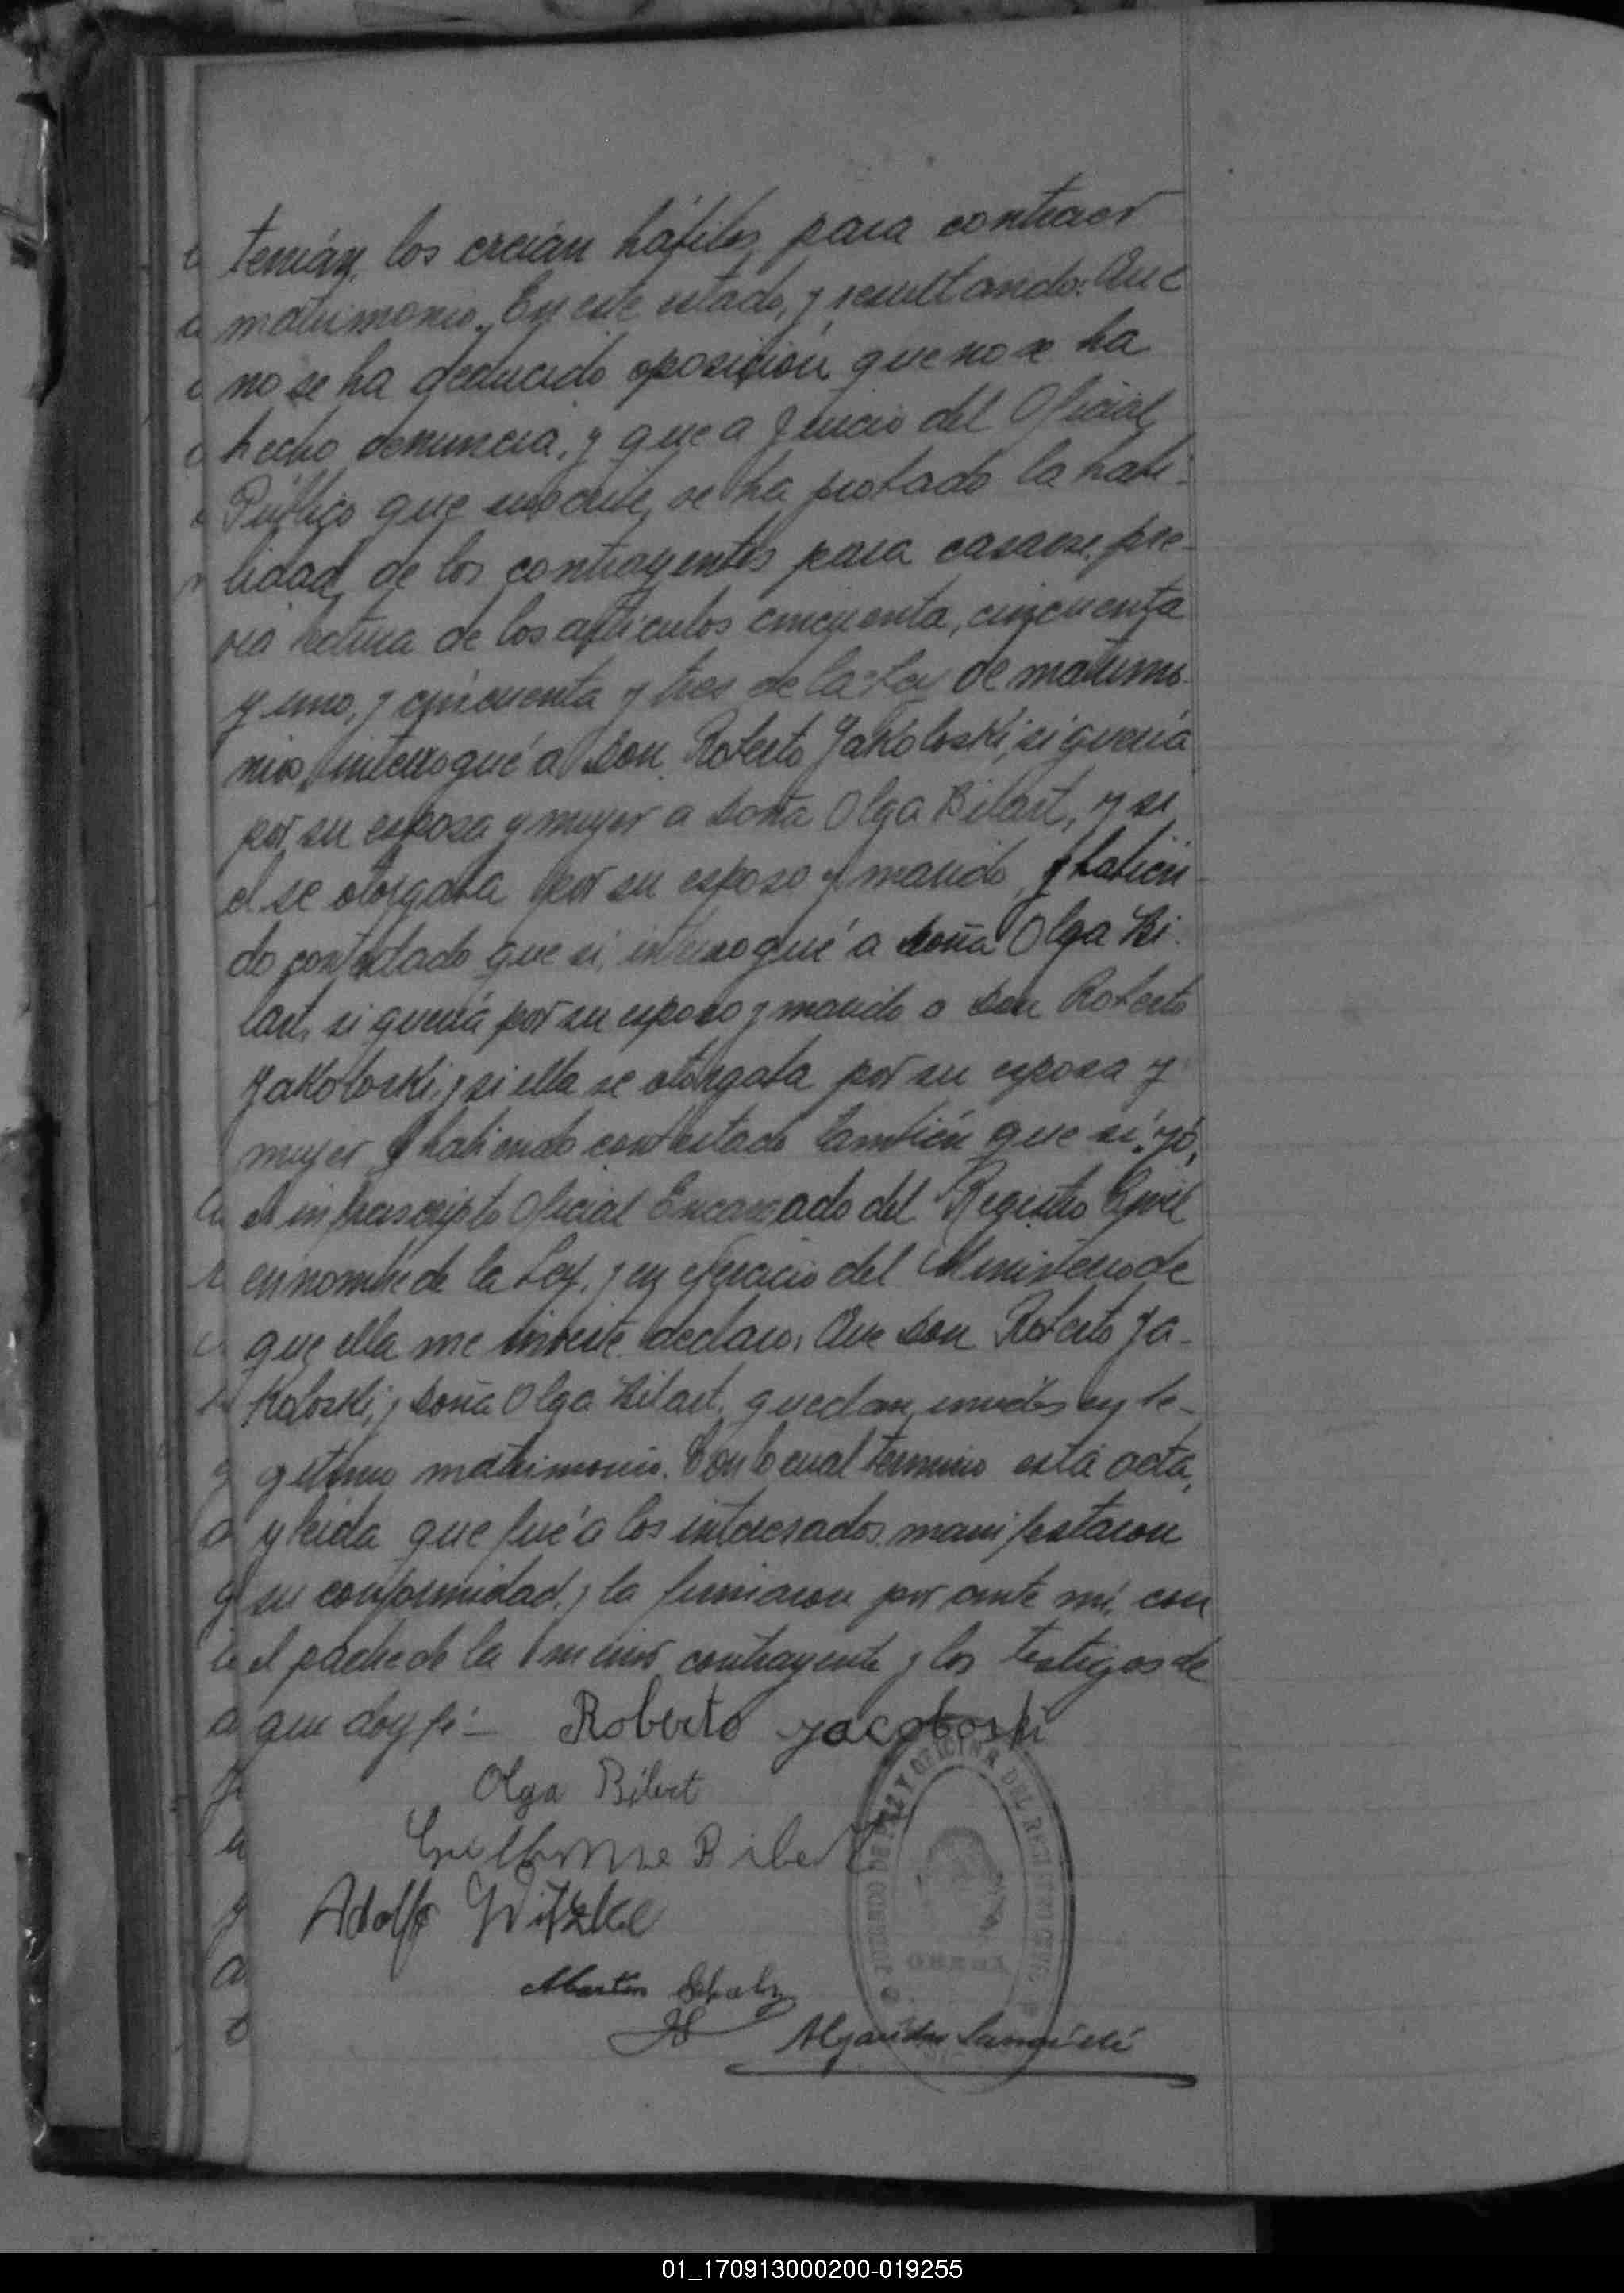 tenían, los creían hábiles para contraer
matrimonio. En este estado, y resultando: Que
no se ha deducido oposición, que no se ha
hecho denuncia, y que a juicio del Oficial
Público que suscribe, se ha probado la habi-
lidad de los contrayentes para casarse, pre-
via lectura de los artículos cincuenta, cincuenta
y uno, y cincuenta y tres de la Ley de matrimo-
nios, interrogué a don Roberto Jakoboski, si quería
por su esposa y mujer a doña Olga Bilart, y si
el se otorgaba por su esposo y marido, y habien-
do contestado que si, interrogué a doña Olga Bi-
lart, si quería por su esposo y marido a don Roberto
Jakoboski, y si ella se otorgaba por su esposa y
mujer y habiendo contestado también que si, yó,
el infrascripto Oficial Encargado del Registro Civil
en nombre de la Ley, y en ejercicio del Ministerio de
que ella me inviste declaro: Que don Roberto Ja-
koboski, y doña Olga Bilart, quedan unidos en le-
gitimo matrimonio. Con lo cual termino esta acta,
y leida que fué a los interesados, manifestaron
su conformidad, y la firmaron por ante mí, con
el padre de la menor contrayente y los testigos de
que doy fé.—
Roberto Jacoboski
Olga Bilert
Guillerme Biler
Adolfo Witzke
Martin
Alejandro
DE PAZ Y OFICINA DEL REGISTRO CIVIL
OBERA
01_170913000200-019255